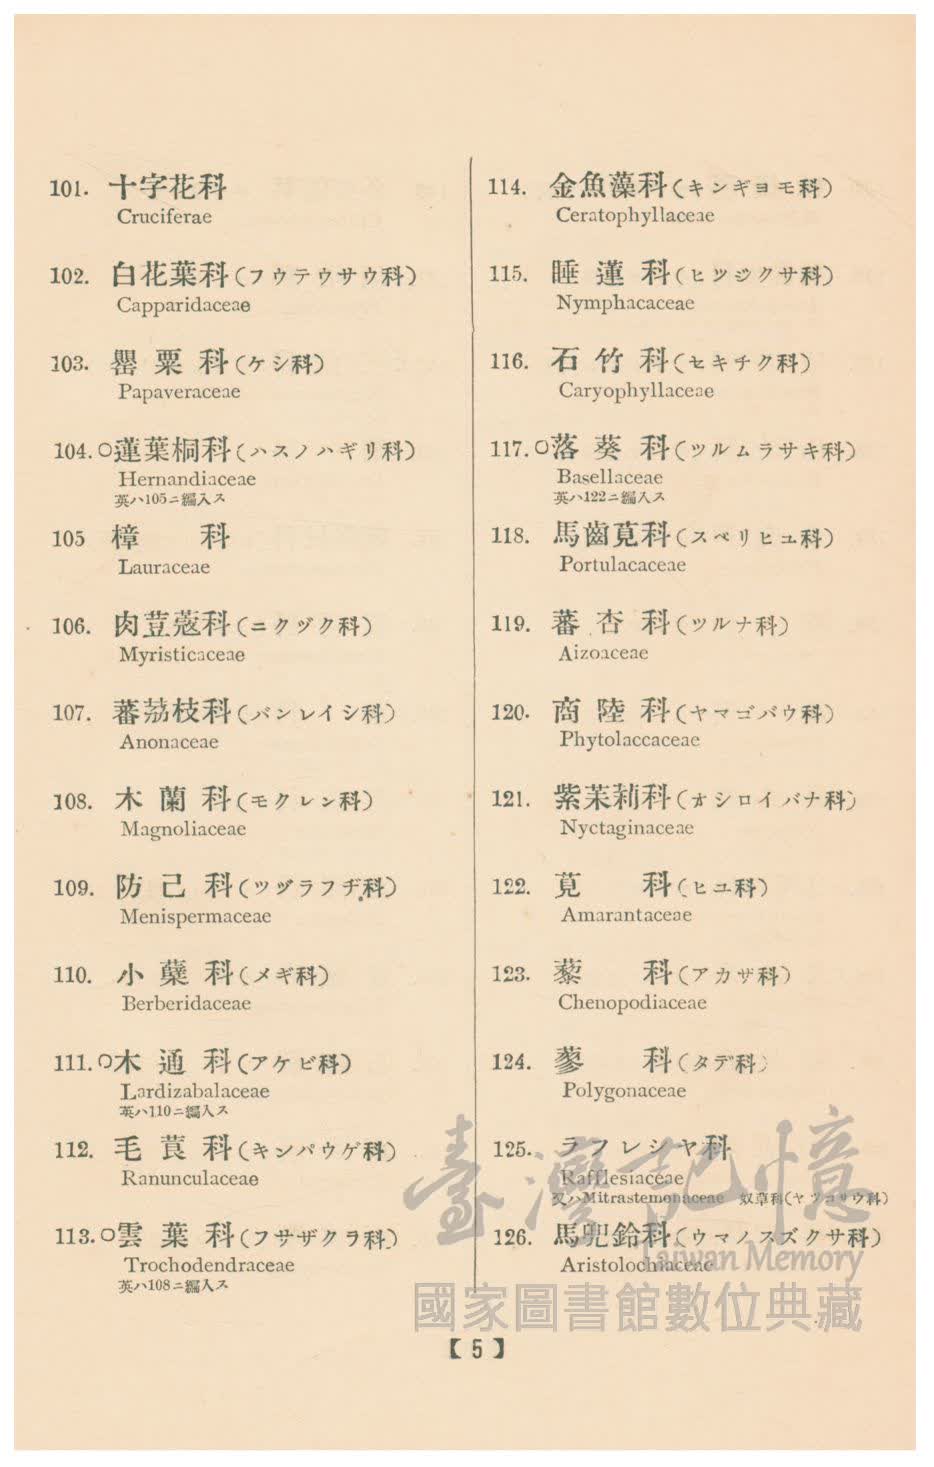 101. 十字花科
Cruciferae
102. 白花葉科(フウテウサウ科)
Capparidaceae
103. 罌粟科(ケシ科)
Papaveraceae
104.○蓮葉桐科(ハスノハギリ科)
Hernandiaceae
英ハ105ニ編入ス
105 樟科
Lauraceae
106. 肉荳蔲科(ニクヅク科)
Myristicaceae
107. 蕃茘枝科(バンレイシ科)
Anonaceae
108. 木蘭科(モクレン科)
Magnoliaceae
109. 防己科(ツヅラフヂ科)
Menispermaceae
110. 小蘗科(メギ科)
Berberidaceae
111.○木通科(アケビ科)
Lardizabalaceae
英ハ110ニ編入ス
112. 毛茛科(キンパウゲ科)
Ranunculaceae
113.○雲葉科(フサザクラ科)
Trochodendraceae
英ハ108ニ編入ス
114. 金魚藻科(キンギヨモ科)
Ceratophyllaceae
115. 睡蓮科(ヒツジクサ科)
Nymphacaceae
116. 石竹科(セキチク科)
Caryophyllaceae
117.○落葵科(ツルムラサキ科)
Basellaceae
英ハ122ニ編入ス
118. 馬齒莧科(スベリヒユ科)
Portulacaceae
119. 蕃杏科(ツルナ科)
Aizoaceae
120. 商陸科(ヤマゴバウ科)
Phytolaccaceae
121. 紫茉莉科(オシロイバナ科)
Nyctaginaceae
122. 莧科(ヒユ科)
Amarantaceae
123. 藜科(アカザ科)
Chenopodiaceae
124. 蓼科(タデ科)
Polygonaceae
125. ラフレシヤ科
Rafflesiaceae
又ハMitrastemonaceae 奴草科(ヤツコサウ科)
126. 馬兜鈴科(ウマノスズクサ科)
Aristolochiaceae
臺灣記憶
Taiwan Memory
國家圖書館數位典藏
【5】